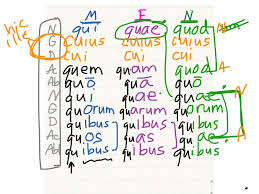 hic
ille
M F N
N qui quae quod
G cuius cuius cuius
D cui cui cui
A quem quam quod A
Ab quō quā quō
N qui quae quae N
G quorum quarum quorum
D quibus quibus quibus
A quos quas quae A
Ab quibus quibus quibus